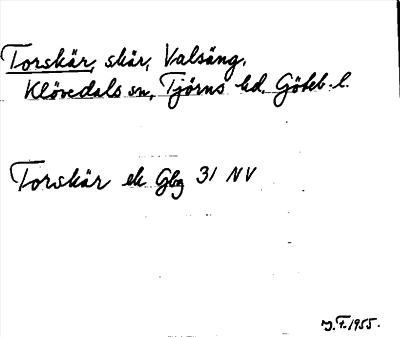 Torskär, skär, Valsäng,
Klövedals sn, Tjörns hd. Göteb. l.
Torskär ek Gbg 31 NV
J. F. 1955.